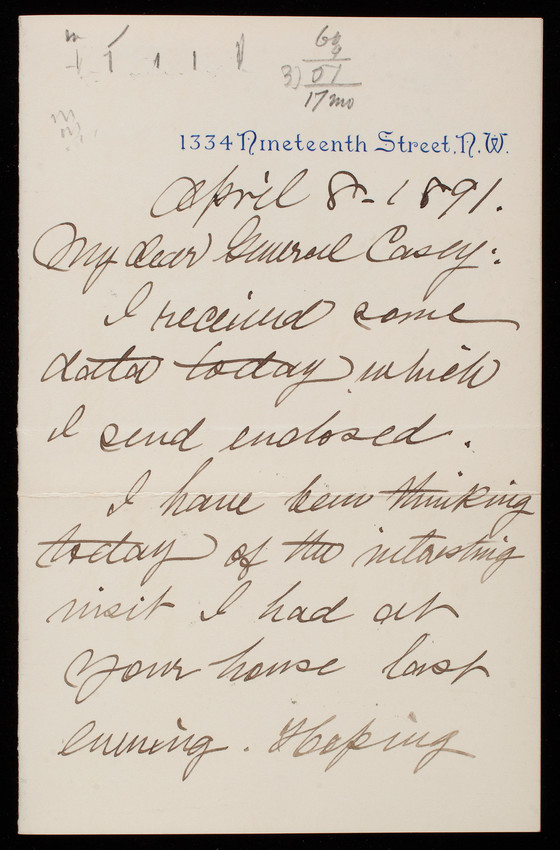 63
3) 51
17 mo
1334 Nineteenth Street, N.W.
April 8 - 1891.
My dear General Casey:
I received some
data today which
I send enclosed.
I have been thinking
today of the interesting
visit I had at
your house last
evening. Hoping